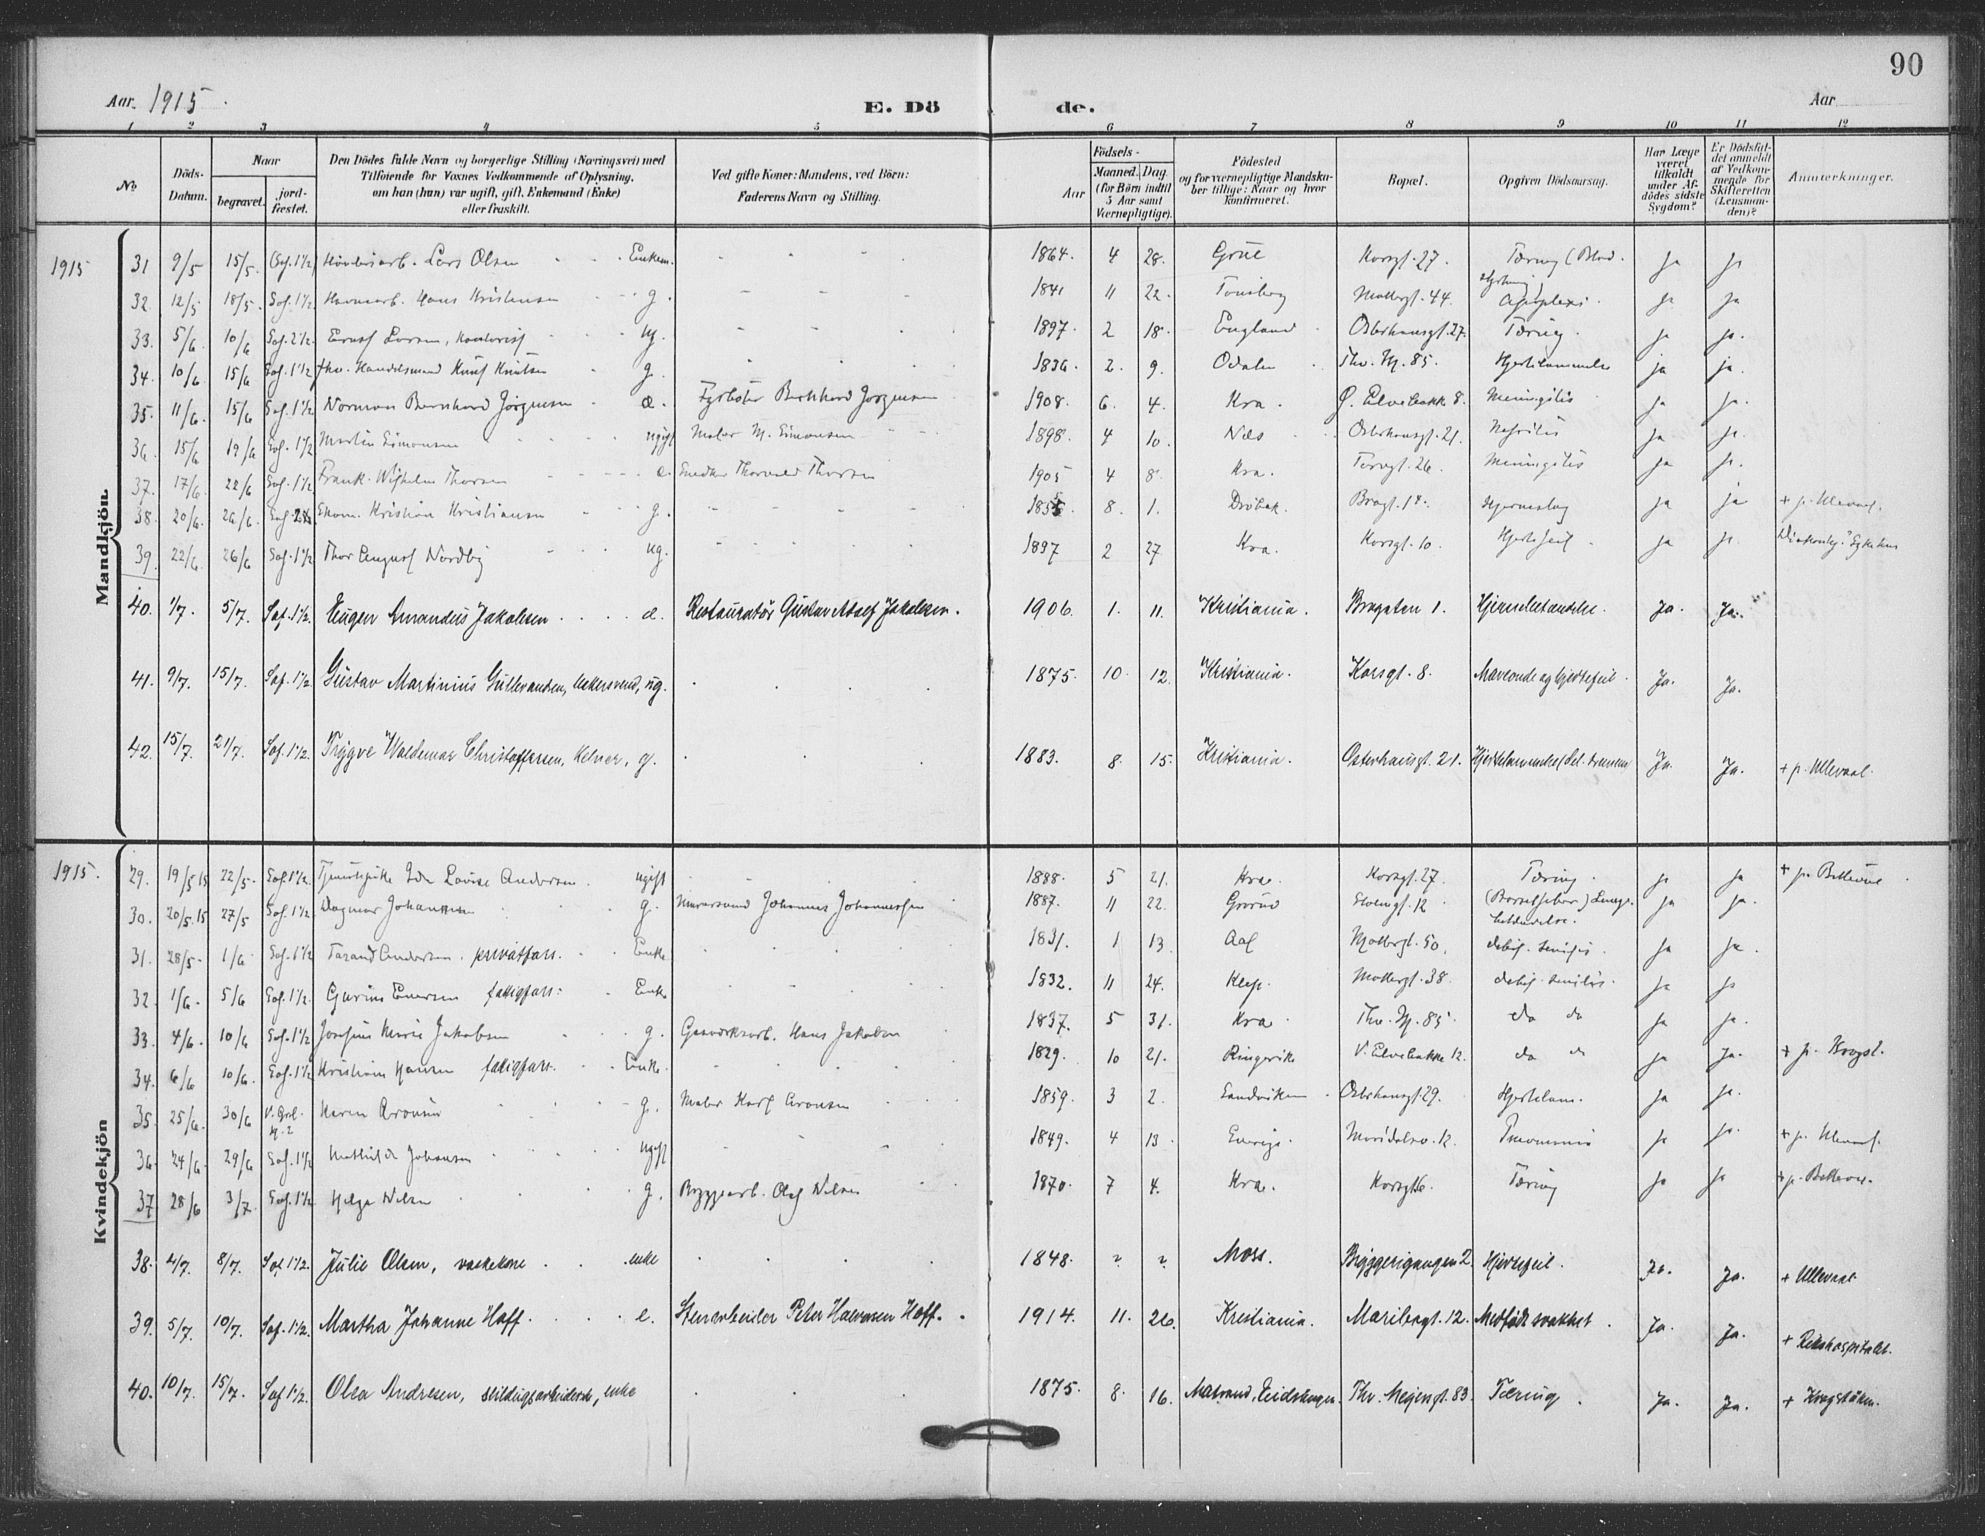 90
Aar. 1915. E. Dö de. Aar
1 2 3 4 5 6 7 8 9 10 11 12
No. Döds-Datum. Naar begravet. jord-fæstet. Den Dödes fulde Navn og borgerlige Stilling (Næringsvei) med Tilföiende for Voxnes Vedkommende af Oplysning, om han (hun) var ugift, gift, Enkemand (Enke) eller fraskilt. Ved gifte Koner: Mandens, ved Börn: Faderens Navn og Stilling. Aar Födsels- Maaned. Dag (for Börn indtil 5 Aar samt Værnepligtige). Födested og for værnepligtige Mandskaber tillige: Naar og hvor konfirmeret. Bopæl. Opgiven Dödsaarsag. Har Læge været tilkaldt under Afdödes sidste Sygdom? Er Dödsfaldet anmeldt af Vedkommende for Skifteretten (Lensmanden)? Anmerkninger.
Mandkjön.
1915 31 9/5 15/5. Sof. 1 1/2 Lars Olsen Enkem. 1864. 4 28. Grue Korsgt. 27. Tæring (Blod- ja ja
32. 12/5 18/5. Sof. 1 1/2 Havnearb. Hans Kristensen g. 1841 11 22. Tønsberg Møllergt. 44. Apoplexi. ja ja
33. 5/6 10/6 Sof. 2 1/2. Ernst Larsen, Kontorist ug. 1897. 2 18. England Osterhausgt. 27. Tæring. ja ja.
34. 10/6 15/6 Sof. 1 1/2 fhv. Handelsmand Knut Knutsen g. 1836. 2. 9. Odalen Thv. M. 85. Hjertelammelse ja ja.
35. 11/6 15/6 Sof. 1 1/2 Norman Bernhard Jørgensen e. Fyrbøter Bernhard Jørgensen 1908. 6. 4. Kra. Ø. Elvebakk 8. Meningitis ja ja.
36. 15/6 19/6 Sof. 1 1/2 Martin Simonsen ugift Maler M. Simonsen 1898. 4 10. Næs Osterhausgt. 21. Nefritis ja ja.
37. 17/6. 22/6 Sof. 1 1/2 Frank Wilhelm Thorsen e. Snedker Thorvald Thorsen 1905 4 8. Kra. Torvgt. 26. Meningitis ja ja.
38. 20/6. 26/6. Sof. Kristian Kristiansen g. 1855 8. 1. Drøbak. Brogt. 14. Hjerneslag ja ja + p. Ullevaal.
39. 22/6. 26/6 Sof. 1 1/2 Thor August Nordby ug. 1897 2 27 Kra. Korsgt. 10. Hjertefeil ja ja.
40. 1/7. 5/7. Sof. 1 1/2. Eugen Amandus Jakobsen e. Restauratør Gustav Adolf Jakobsen. 1906. 1. 11. Kristiania. Brogaten 1. Hjernebetændelse. Ja. Ja.
41. 9/7. 15/7. Sof. 1 1/2. Gustav Martinius Gulbrandsen, bakersvend, ug. 1875. 10. 12. Kristiania. Korsgt. 8. Maveonde og hjertefeil. Ja. Ja.
42. 15/7. 21/7. Sof. 1 1/2. Trygve Waldemar Christoffersen, Kelner, g. 1883. 8. 15. Kristiania. Osterhausgt. 21. Hjertelammelse (del. tremens Ja. Ja. + p. Ullevaal.
Kvindekjön
1915. 29. 19/5 15 22/5. Sof. 1 1/2. Tjenestepike Ida Lovise Andersen. ugift 1888. 5 21. Kra. Korsgt. 27. Tæring. ja ja + p. Bellevue
30. 20/5. 15 27/5 Sof. 1 1/2 Dagmar Johannessen g. Murersvend Johannes Johannessen 1887. 11 22. Grorud 12 (Barselfeber) Lunge-betændelse. ja ja.
31. 28/5. 1/6. Sof. 1 1/2 Tarand Andersen. privatfors. Enke. 1831. 1 13. Aal Møllergt. 50. debil. senilis. ja ja.
32. 1/6. 5/6 Sof. 1 1/2. Gurine Evensen fattigfors. Enke 1832. 11 24. Klep. Møllergt. 38. debil. senilis. ja ja
33. 4/6. 10/6 Sof. 1 1/2 Josefine Marie Jakobsen g. Gasværksarb. Hans Jakobsen 1837. 5 31. Kra. Thv. M. 85 do do ja ja.
34. 6/6 10/6. Sof. 1 1/2 Kristiane Hansen fattigfors. Enke. 1829. 10 21. Ringerike V. Elvebakke 12. do do ja ja. + p. Krogst.
35. 25/6. 30/6 V. Grl. Karen Aronsen g. Maler Karl Aronsen 1859. 3 2. Sandviken Osterhausgt. 29. Hjertelam. ja ja.
36. 24/6. 29/6 Sof. 1 1/2 Mathilde Johansen ugift 1849. 4 13. Sverige. Maridalsv. 12. Pneumonie ja ja. + p. Ullevaal.
37 28/6 3/7. Sof. 1 1/2 Helga Nilsen g. Bryggearb. Olaf Nilsen 1870. 7 4. Kra. Tæring ja ja + p. Bellevue.
38. 4/7. 8/7. Sof. 1 1/2. Julie Olsen, vaskekone enke 1848. ? ? Moss. Bryggerigangen 2. Hjertefeil. Ja. Ja. + Ullevaal
39. 5/7. 10/7. Sof. 1 1/2. Martha Johanne Hoff. e. Stenarbeider Peter Halvorsen Hoff. 1914. 11. 26. Kristiania. Maribogt. 12. Medfødt svakhet. Ja. Ja. + Rikshospitalet.
40. 10/7. 15/7. Sof. 1 1/2. Olea Andresen, enke 1875. 8. 16. Matrand, Eidskogen. Thv. Meyersgt. 83. Tæring. Ja. Ja. + Krogstøtten.